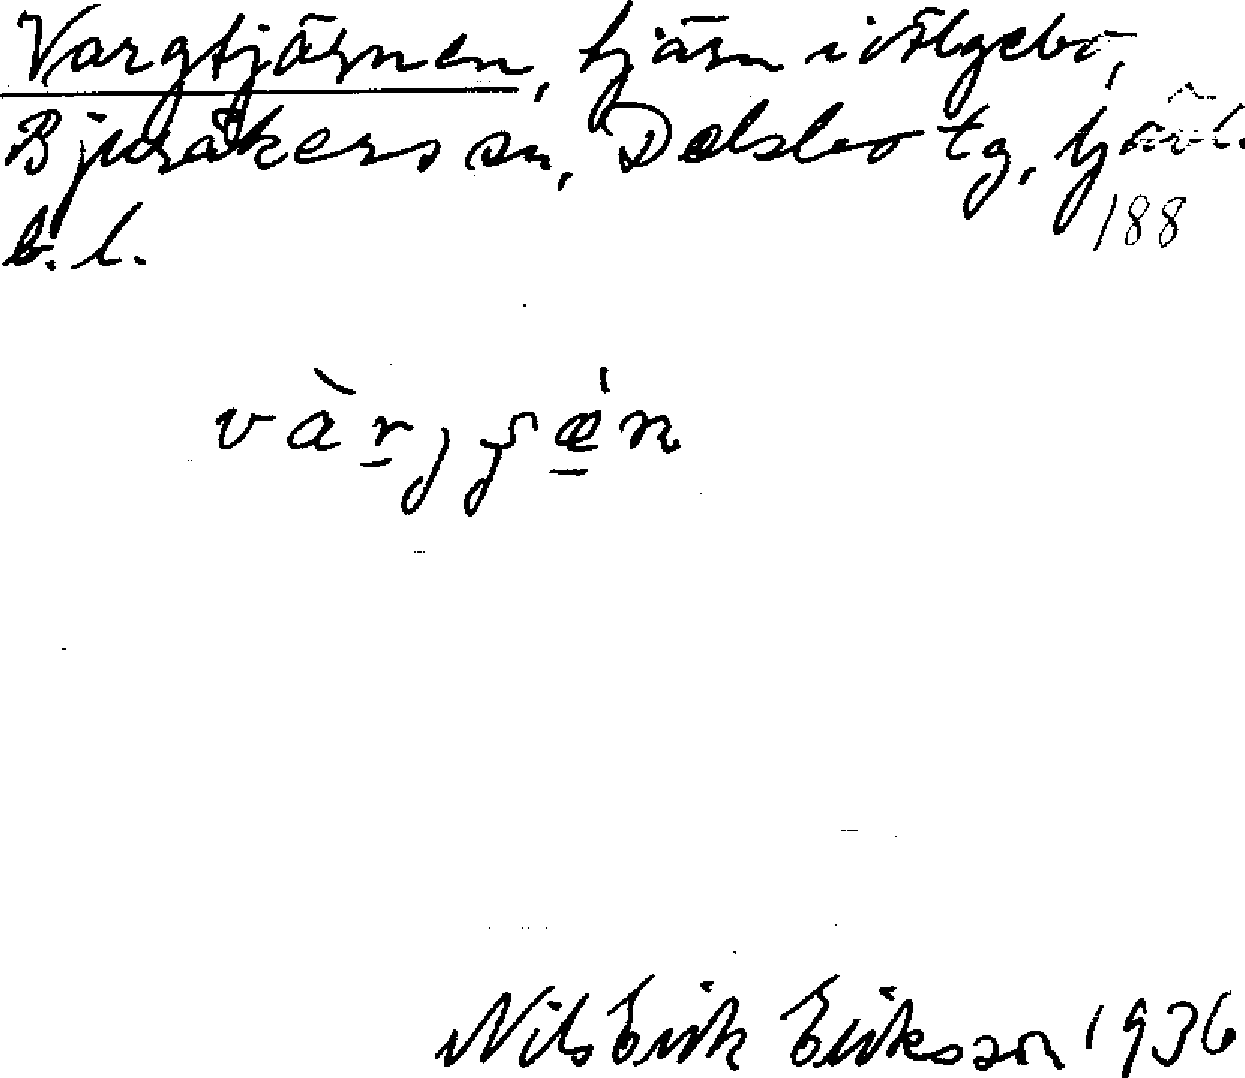 Vargtjärnen, tjärn i Älgebo,
Bjuråkers sn, Delsbo tg, Gävl.
188
b. l.
Nils Erik Eriksson 1936